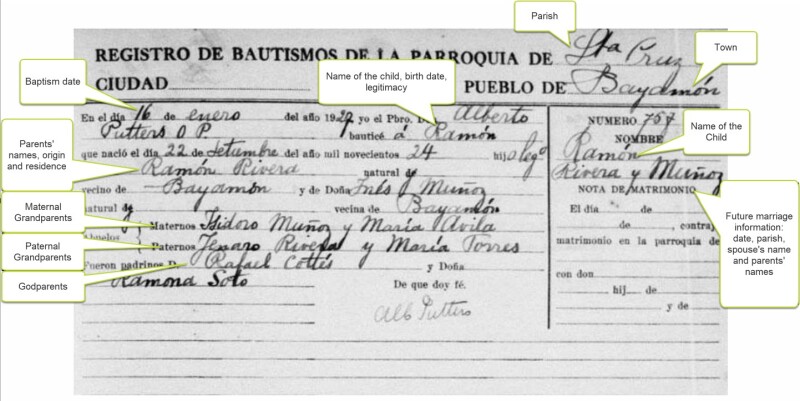 Parish
REGISTRO DE BAUTISMOS DE LA PARROQUIA DE Sta Cruz
Town
CIUDAD PUEBLO DE Bayamón
Baptism date
Name of the child, birth date, legitimacy
En el día 16 de enero del año 19 yo el Pbro. D. Alberto
Putters O P. bauticé á Ramón
que nació el día 22 de Setumbre del año mil novecientos 24 hijo leg°
Parents' names, origin and residence
Ramón Rivera natural de
vecino de Bayamón y de Doña Inés Muñoz
natural de vecina de Bayamón
Maternal Grandparents
Abuelos Maternos Isidoro Muñoz y María Avila
Paternal Grandparents
Paternos Jenaro Rivera y María Torres
Fueron padrinos D. Rafael Cottés y Doña
Godparents
Ramona Soto De que doy fé.
Alb Putters
NUMERO 757
NOMBRE
Name of the Child
Ramón
Rivera y Muñoz
NOTA DE MATRIMONIO
El día de
de , contrajo
matrimonio en la parroquia de
con don
hij de
y de
Future marriage information: date, parish, spouse's name and parents' names